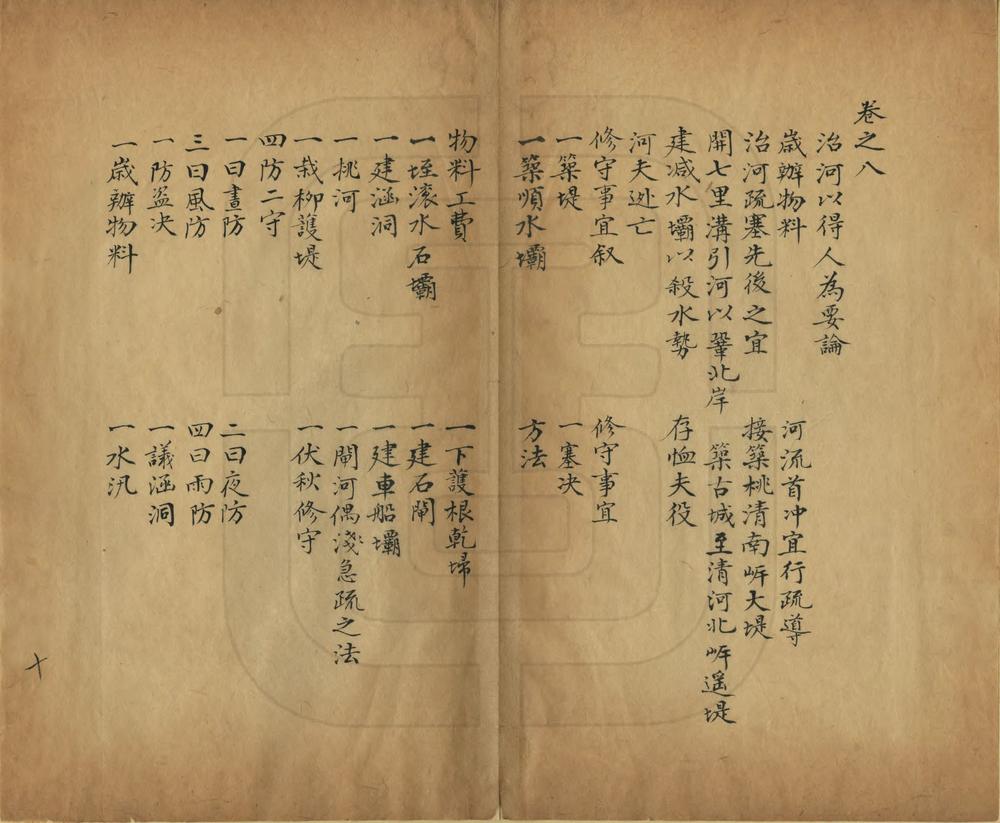 卷之八
治河以得人為要論
歲辦物料　河流首冲宜行疏導
治河疏塞先後之宜　接築桃清南岍大堤
開七里溝引河以鞏北岸　築古城至清河北岍遥堤
建减水壩以殺水勢　存恤夫役
河夫逊亡
修守事宜叙　修守事宜
一築堤　一塞决
一築順水壩　方法
物料工費　一下護根乾埽
一垤滚水石壩　一建石閘
一建涵洞　一建車船壩
一桃河　一閘河偶淺急疏之法
一栽柳護堤　一伏秋修守
四防二守
一曰晝防　二曰夜防
三曰風防　四曰雨防
一防盗决　一議涵洞
一歲辦物料　一水汛
十